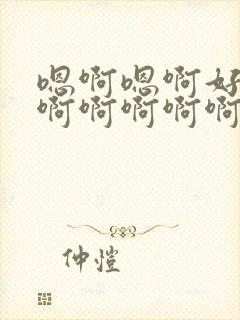 嗯啊嗯啊好
啊啊啊啊啊
仲恺